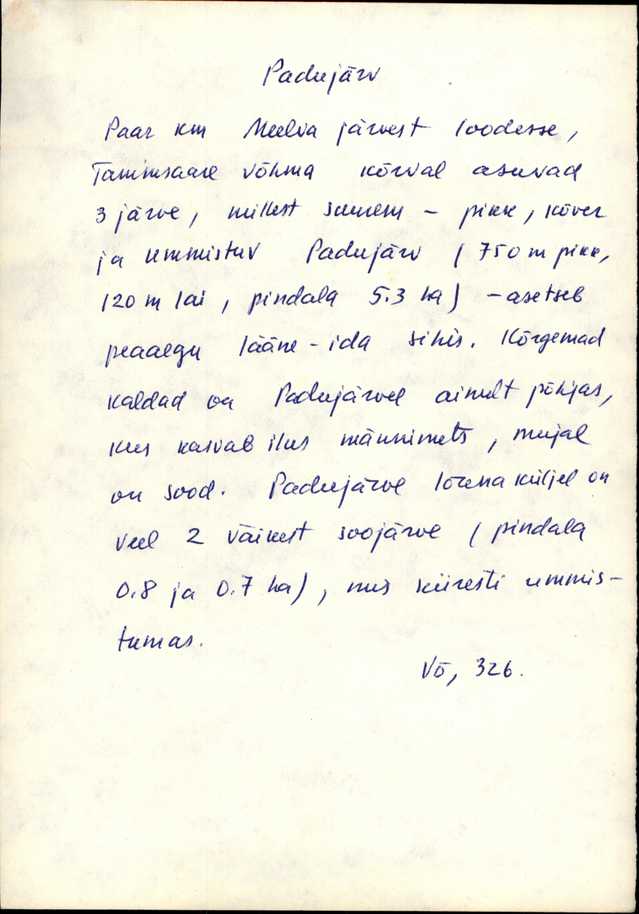 Padujärv
Paar km Meelva järvest loodesse,
Tammsaare võhma kõrval asuvad
3 järve, millest suurem - pikk, kõver
ja ummistuv Padujärv (750 m pikk,
120 m lai, pindala 5.3 ha) - asetseb
peaaegu lääne-ida sihis. Kõrgemad
kaldad on Padujärvel ainult põhjas,
kus kasvab ilus männimets, mujal
on sood. Padujärve lõuna küljel on
veel 2 väikest soojärve (pindala
0.8 ja 0.7 ha), mis kiiresti ummis-
tumas.
Võ, 326.